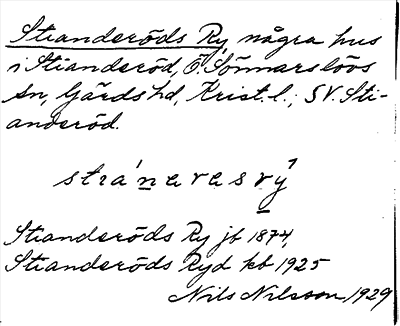 Stianderöds Ry, några hus
i Stianderöd, Ö. Sönnarslövs
sn, Gärds hd, Krist. l.; SV. Sti-
anderöd.
stránarasrý
Stianderöds Ry jb 1874,
Stianderöds Ryd kb 1925
Nils Nilsson, 1929